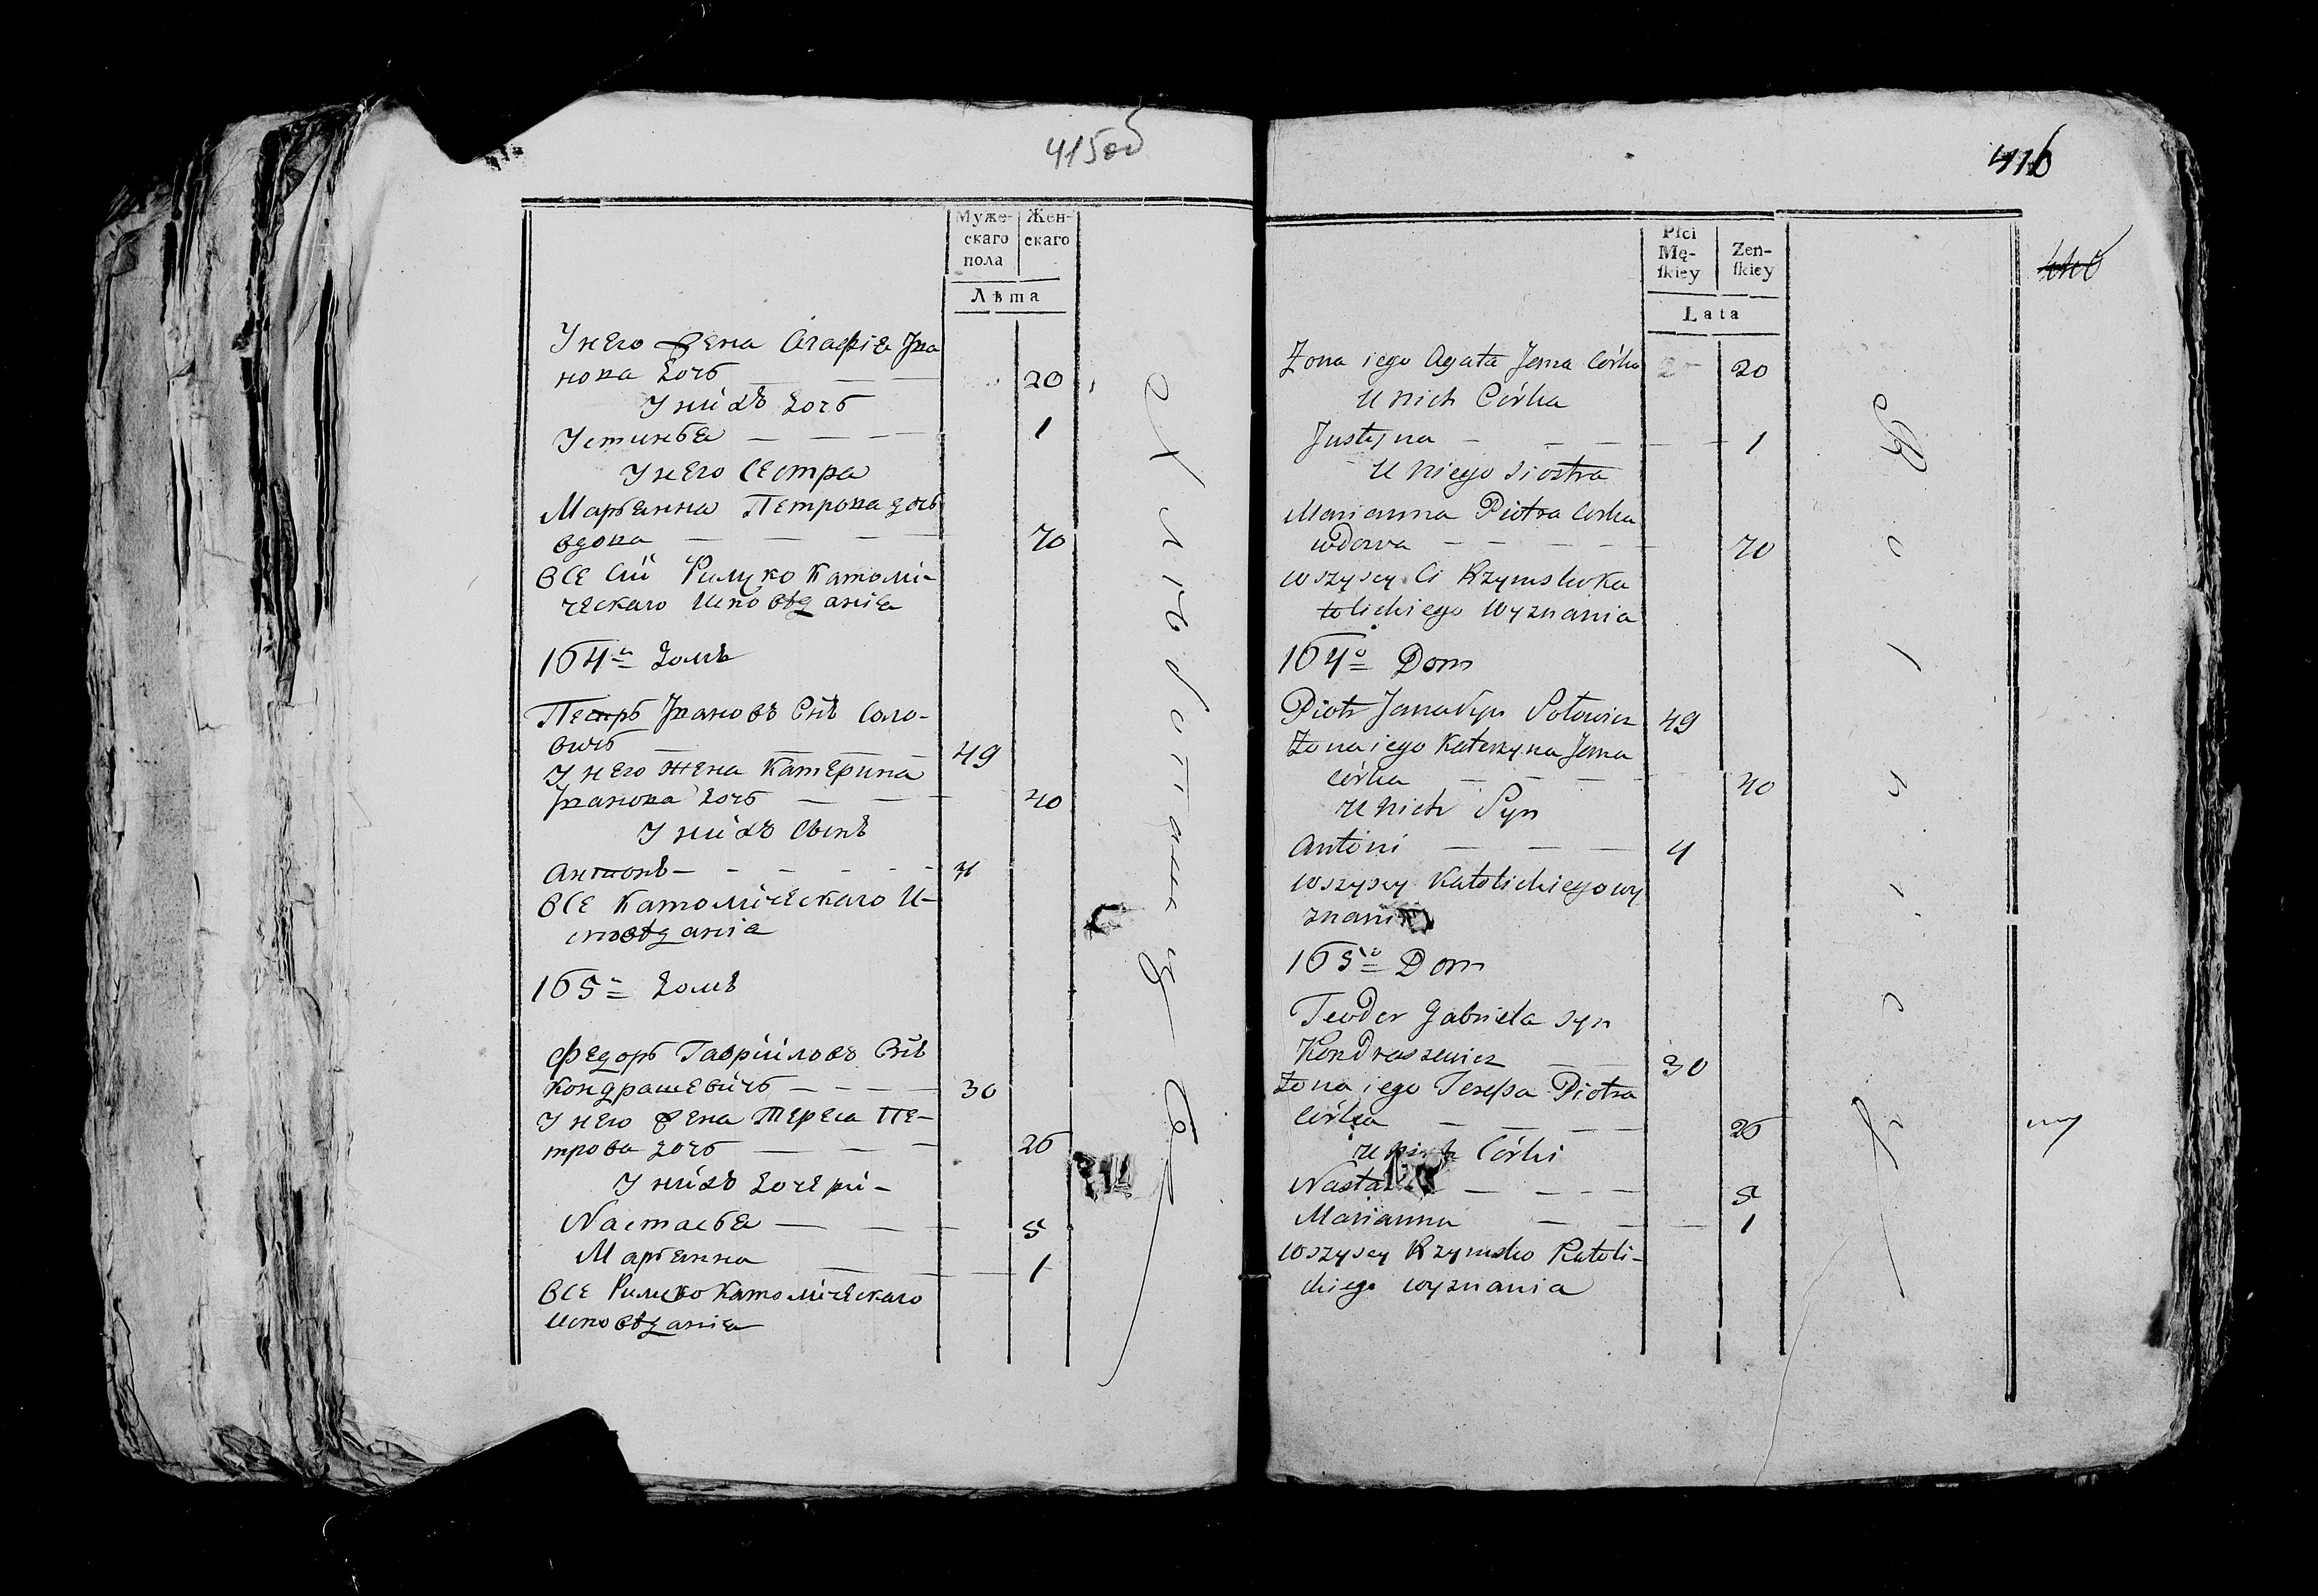 415об
Муже-
скаго
пола
Жен-
скаго
Лѣта
У него жена Агафiя Ива
нова дочь — — 20
У нихъ дочь
Устинья — — — 1
У него сестра
Марьянна Петрова дочь
вдова — — — 70
Все сiи Римуко Католи-
ческаго исповѣданiя
164й домъ
Петръ Ивановъ Снъ Соло-
вичь — — — 49
У него жена Катерина
Иванова дочь — — 40
У нихъ сынъ
Антонъ — — — — — 4
Все Католическаго И-
сповѣданiя
165й домъ
Федоръ Гаврiиловъ Снъ
Кондрашевичь — — — — 30
У него жена Тереса Пе-
трова дочь — — — 26
У нихъ дочери —
Настасья — — — 5
Марьянна — — — 1
Все Римско Католическаго
исповѣданiя
416
Płci
Mę-
ſkiey
Zeń-
ſkiey
Lata
Żona iego Agata Jana Córka 20
U nich Córka
Justyna — — — — 1
U niego siostra
Marianna Piotra Corka
wdowa — — — — 70
wszyscy Ci Rzymsko Ka
tolickiego wyznania
164o Dom
Piotr Jana Syn Sołowicz 49
Żona iego Katerzyna Jana
córka — — — 40
U nich Syn
Antoni — — — 4
wszyscy Katolickiego wy
znania
165o Dom
Teodor Gabriela syn
Kondraszewicz — — 30
Żona iego Teressa Piotra
Córka — — — — 26
U nich Córki
— — — — 5
Marianna — — — 1
wszyscy Rzymsko Katoli-
ckiego wyznania